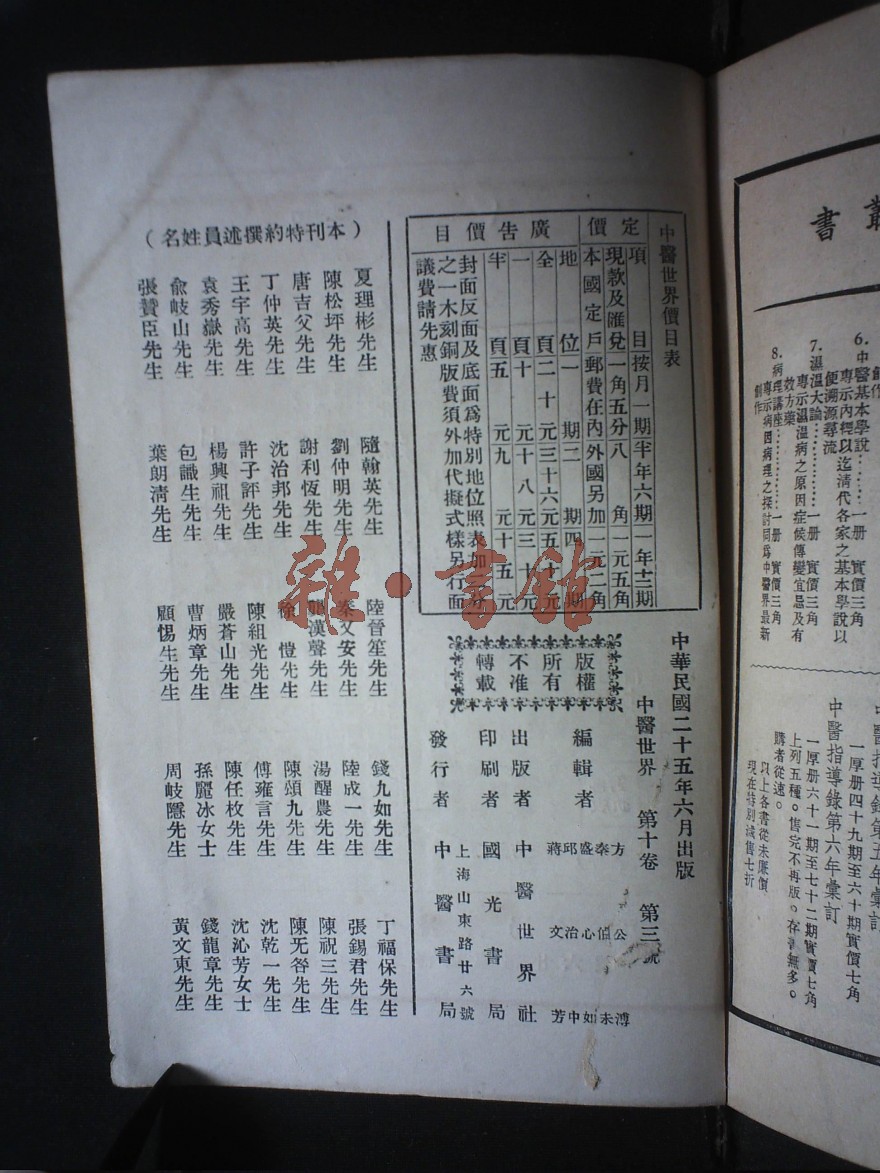 叢
書
6.中醫基本學說………一册 實價三角
專示內經以迄清代各家之基本學說以
便溯源尋流
7.濕温大論…………一册 實價三角
專示濕温病之原因症候傳變宜忌及有
效方藥
8.病理講座…………一册 實價三角
專示病因病理之探討同爲中醫界最新
創作
一厚册四十九期至六十期實價七角
中醫指導錄第六年彙訂
一厚册六十一期至七十二期實價七角
上列五種。售完不再版。存書無多。
購者從速。
以上各書從未廉價
現在特別減售七折
中醫世界價目表
定價
項目 按月一期 半年六期 一年十二期
現款及匯兌 一角五分 八角 一元五角
本國定戶郵費在內外國另加一元二角
廣告價目
地位 一期 二期 四期
全頁 二十元 三十六元 五十元
一頁 十元 十八元 三十元
半頁 五元 九元 十五元
封面反面及底面爲特別地位照表加二分
之一木刻銅版費須外加代擬式樣另行面
議費請先惠
中華民國二十五年六月出版
中醫世界 第十卷 第三號
版權
所有
不准
轉載
編輯者 方公溥 秦伯未 盛心如 邱治中 蔣文芳
出版者 中醫世界社
印刷者 國光書局
上海山東路廿六號
發行者 中醫書局
(本刊特約撰述員姓名)
夏理彬先生 隨翰英先生 陸晉笙先生 錢九如先生 丁福保先生
陳松坪先生 劉仲明先生 秦又安先生 陸成一先生 張錫君先生
唐吉父先生 謝利恆先生 漢聲先生 湯醒農先生 陳祝三先生
丁仲英先生 沈治邦先生 徐愷先生 陳頌九先生 陳无咎先生
王宇高先生 許子評先生 陳組光先生 傅雍言先生 沈乾一先生
袁秀嶽先生 楊興祖先生 嚴蒼山先生 陳任枚先生 沈沁芳女士
俞岐山先生 包識生先生 曹炳章先生 孫麗冰女士 錢龍章先生
張贊臣先生 葉朗清先生 顧惕生先生 周岐隱先生 黃文東先生
雜·書館